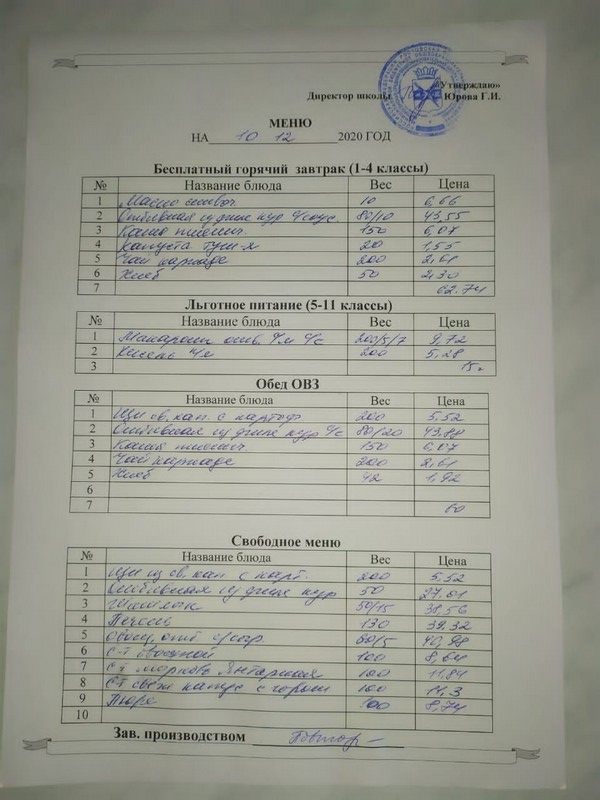 «Утверждаю»
Директор школы Юрова Г.И.
МЕНЮ
НА 10 12 2020 ГОД
Бесплатный горячий завтрак (1-4 классы)
№ Название блюда Вес Цена
1 Масло сливоч. 10 6,66
2 Отбивная из филе кур с/соус. 80/10 43,55
3 Каша пшенич. 150 6,07
4 Капуста туш-я 20 1,55
5 Чай каркаде 200 2,61
6 Хлеб 50 2,30
7 62.74
Льготное питание (5-11 классы)
№ Название блюда Вес Цена
1 Макароны отв. с/м с/с 200/5/7 9,72
2 Кисель 200 5,28
3 15
Обед ОВЗ
№ Название блюда Вес Цена
1 Щи св. кап. с картоф. 200 5,52
2 Отбивная из филе кур с/с 80/20 43,88
3 Каша пшенич. 150 6,07
4 Чай каркаде 200 2,61
5 Хлеб 42 1,92
6
7 60
Свободное меню
№ Название блюда Вес Цена
1 Щи из св. кап. с карт. 200 5,52
2 Отбивная из филе кур 50 27.01
3 Шашлык 50/15 38,56
4 Печень 130 39.32
5 60/5 40,98
6 С-т овощной 100 8,64
7 С-т морковь Янтарная 100 11,84
8 С-т свеж капус с горош 100 14,3
9 Пюре 100 8,74
10
Зав. производством